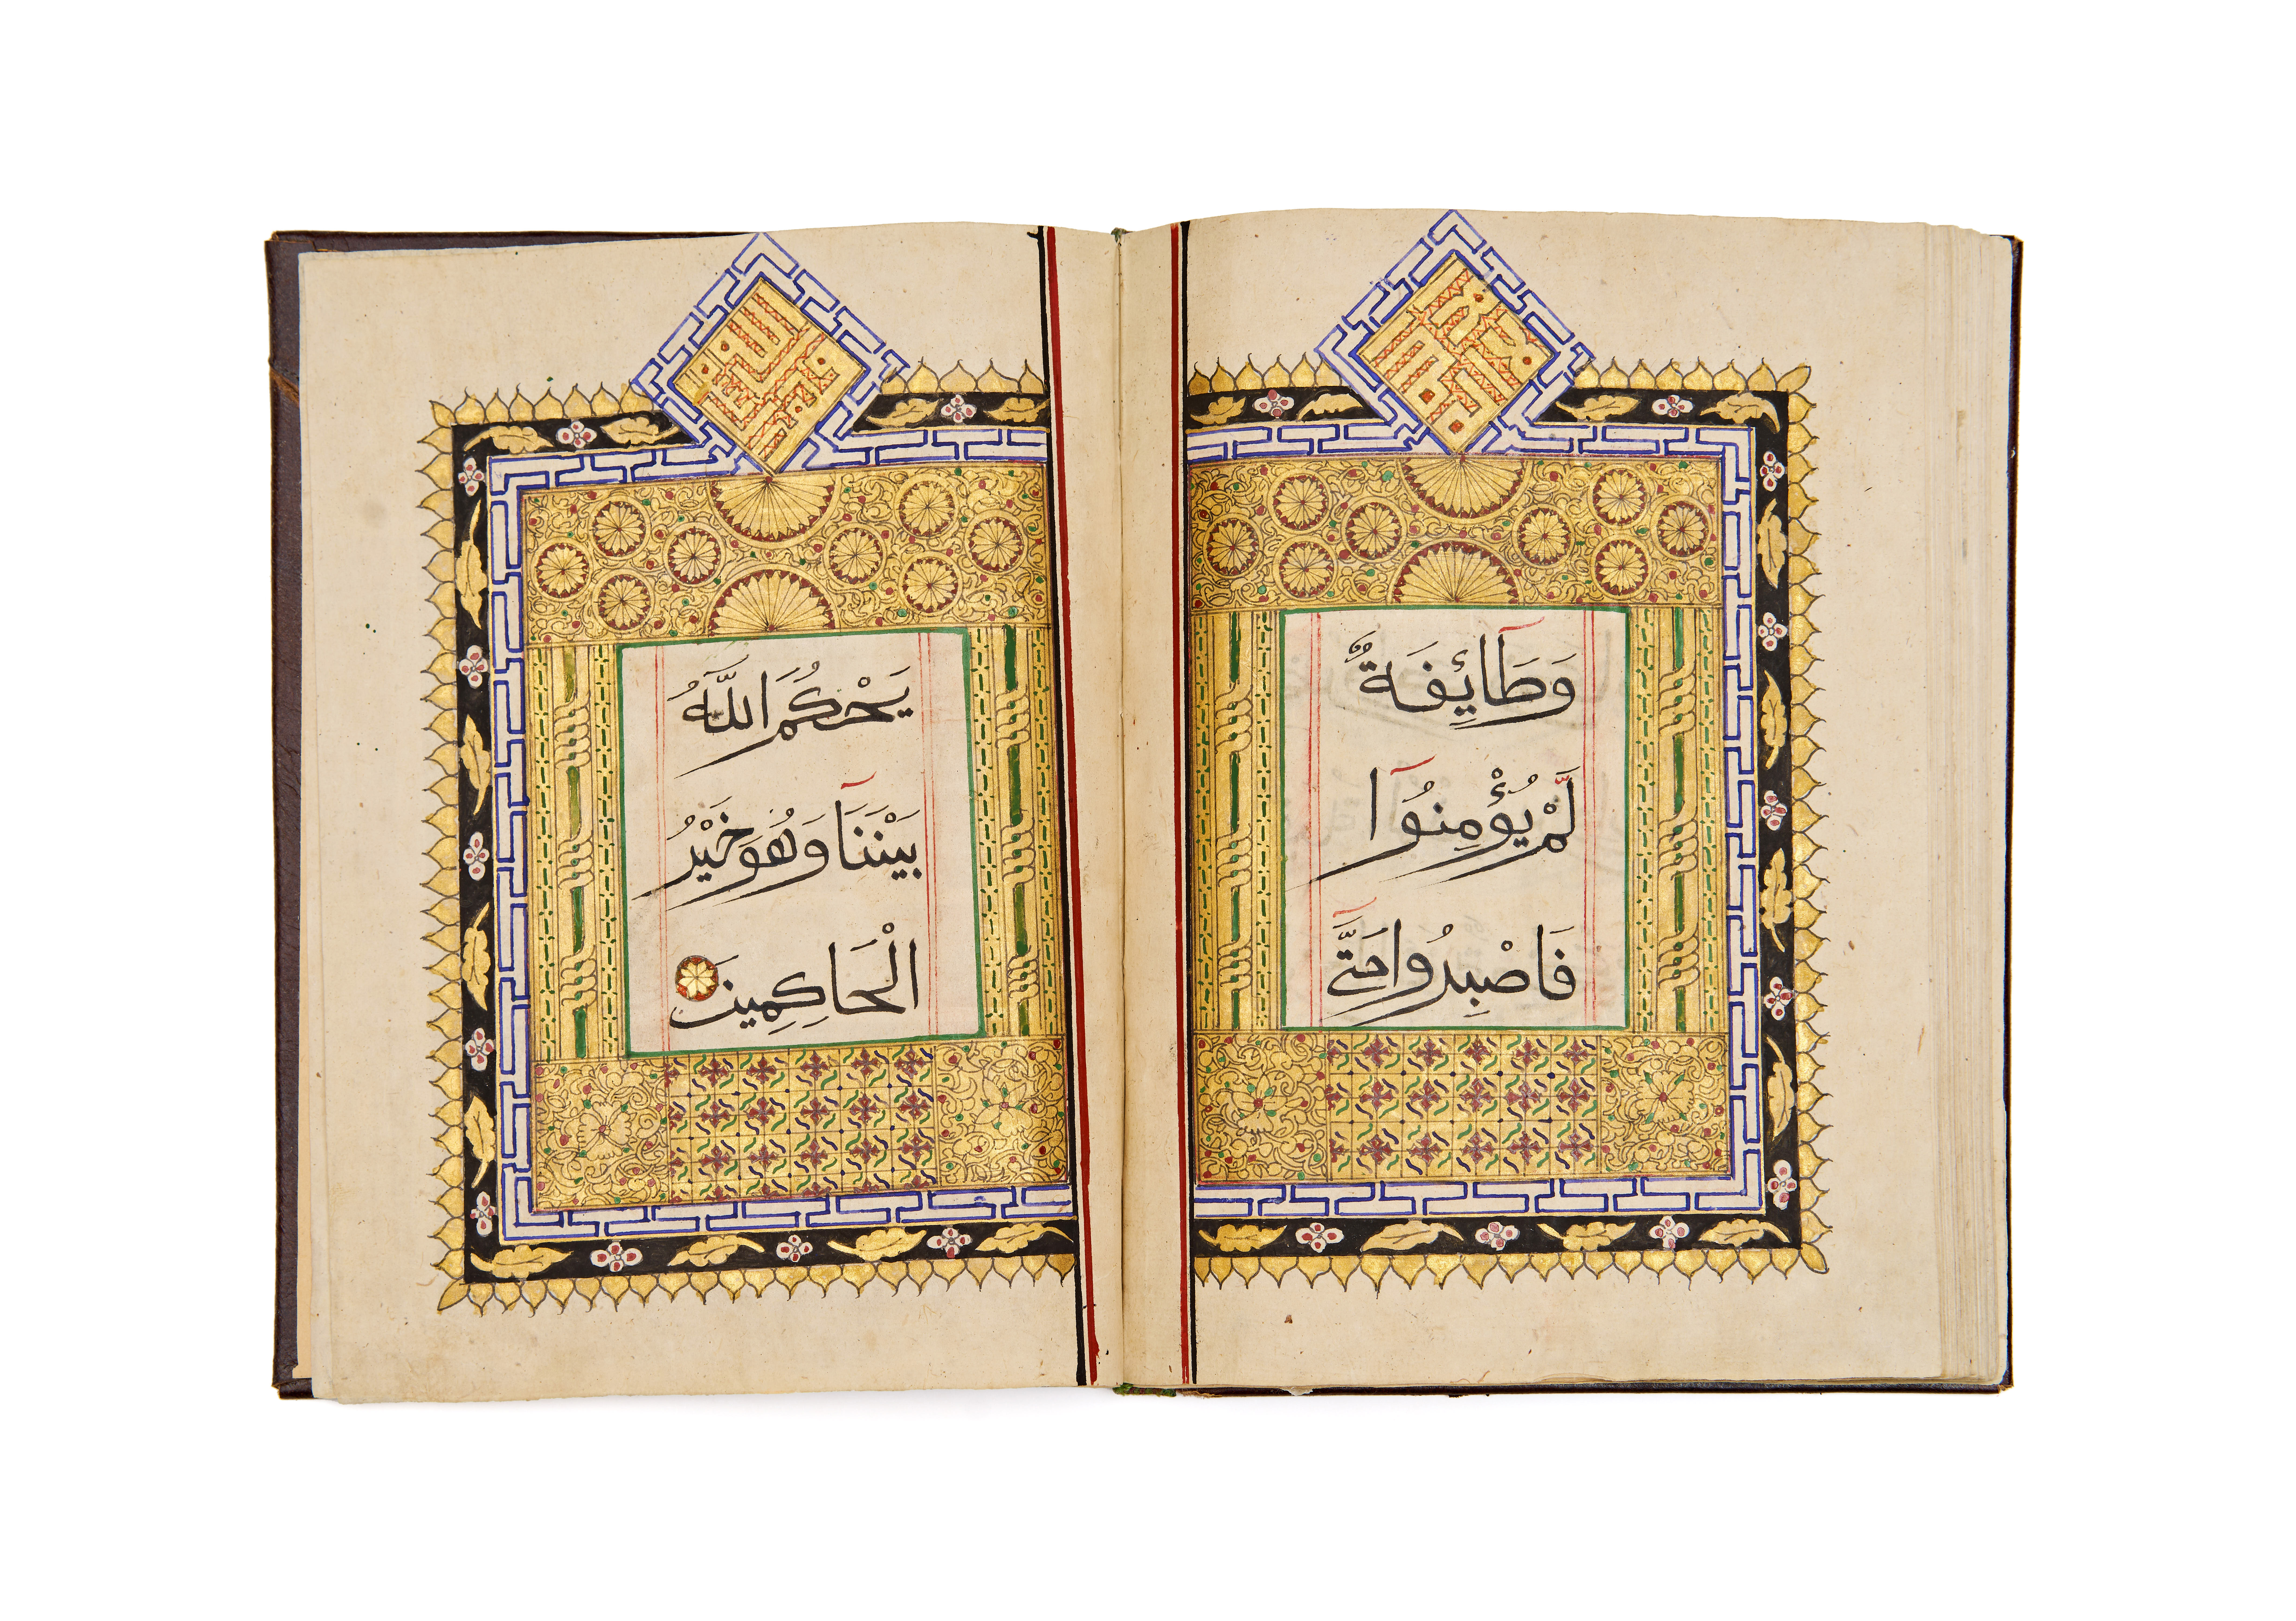 وَطَائِفَةٌ
لَّمْ يُؤْمِنُوا
فَاصْبِرُوا حَتَّى
يَحْكُمَ اللَّهُ
بَيْنَنَا وَهُوَ خَيْرُ
الْحَاكِمِينَ